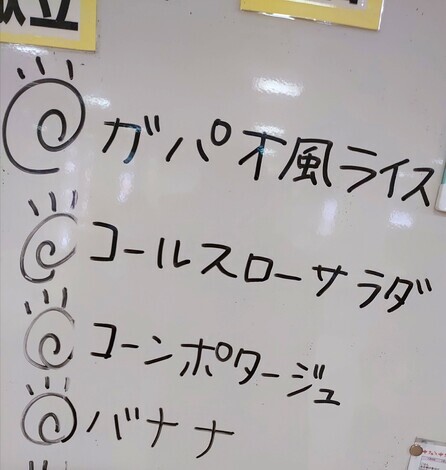 献立
ガパオ風ライス
コールスローサラダ
コーンポタージュ
バナナ